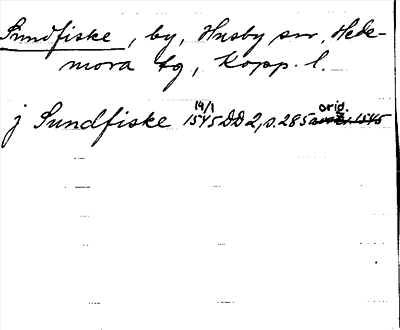 Sundfiske, by, Husby snr, Hede-
mora tg, Kopp. l.
j Sundfiske 19/1 1545 DD 2, s. 285 orig.